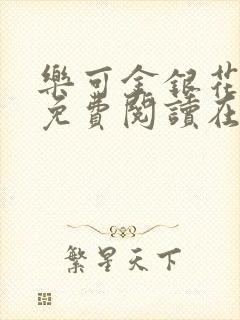 樂可金銀花
免費閱讀在
繁星天下